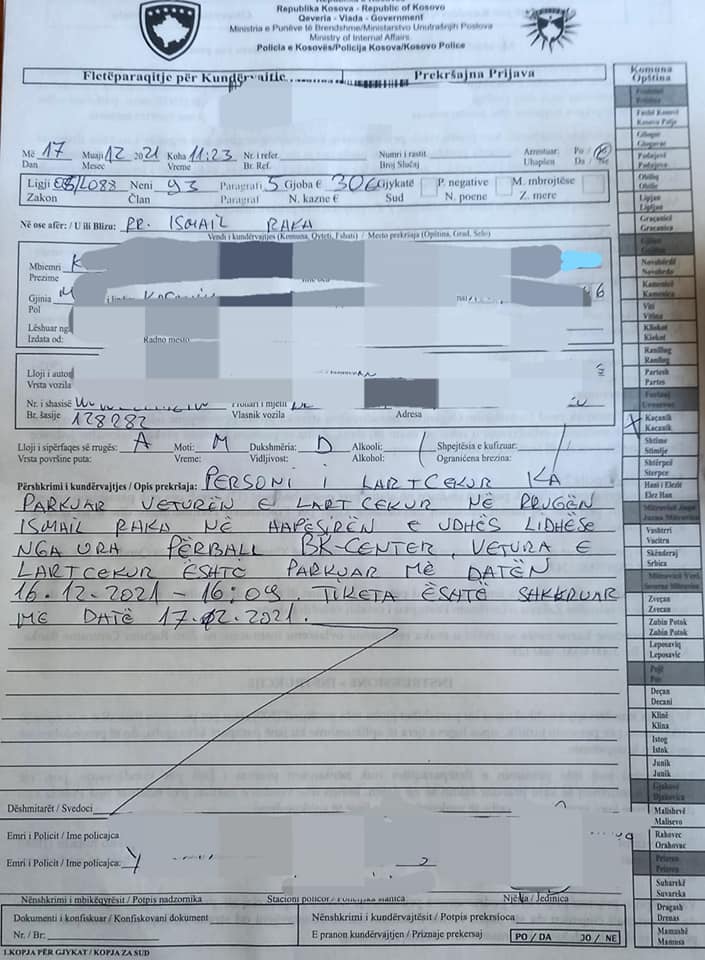 Republika Kosova - Republic of Kosovo
Qeveria - Vlada - Government
Ministria e Punëve të Brendshme/Ministarstvo Unutrašnjih Poslova
Ministry of Internal Affairs
Policia e Kosovës/Policija Kosova/Kosovo Police
Fletëparaqitje për Kundërvajtje Prekršajna Prijava
Komuna
Opština
Më 17 Muaji 12 2021 Koha 11:23 Nr. i refer. Numri i rastit Arrestuar: Po
Dan Mesec Vreme Br. Ref. Broj Slučaj Uhapšen Da / Ne
Ligji 08/L088 Neni 93 Paragrafi 5 Gjoba € 30€ Gjykatë P. negative M. mbrojtëse
Zakon Član Paragraf N. kazne € Sud N. poene Z. mere
Në ose afër: / U ili Blizu: RR. ISMAIL RAKA
Vendi i kundërvajtjes (Komuna, Qyteti, Fshati) / Mesto prekršaja (Opština, Grad, Selo)
Mbiemri K
Prezime
Gjinia M
Pol
6
Lëshuar nga
Izdata od: Radno mesto
Lloji i autom
Vrsta vozila
Nr. i shasisë
Br. šasije 128282 Vlasnik vozila Adresa
Lloji i sipërfaqes së rrugës: A Moti: M Dukshmëria: D Alkooli: / Shpejtësia e kufizuar: /
Vrsta površine puta: Vreme: Vidljivost: Alkohol: Ograničena brezina:
Përshkrimi i kundërvajtjes / Opis prekršaja: PERSONI I LARTCEKUR KA
PARKUAR VETURËN E LARTCEKUR NË RRUGËN
ISMAIL RAKA NË HAPËSIRËN E UDHËS LIDHËSE
NGA URA PËRBALL BK-CENTER, VETURA E
LARTCEKUR ËSHTË PARKUAR ME DATËN
16.12.2021 - 16:09. TIKETA ËSHTË SHKRUAR
ME DATË 17.12.2021.
Dëshmitarët / Svedoci
Emri i Policit / Ime policajca
Emri i Policit / Ime policajca:
Nënshkrimi i mbikëqyrësit / Potpis nadzornika Stacioni policor / Policijska stanica Njësia / Jedinica
Dokumenti i konfiskuar / Konfiskovani dokument
Nr. / Br:
Nënshkrimi i kundërvajtësit / Potpis prekrsioca
E pranon kundërvajtjen / Priznaje prekersaj PO / DA JO / NE
1.KOPJA PËR GJYKAT / KOPJA ZA SUD
Fushë Kosovë
Kosova Polje
Gllogoc
Glogovac
Podujevë
Podujevo
Obiliq
Obilic
Lipjan
Lipljan
Graçanicë
Gracanica
Novobërdë
Novobrdo
Kamenicë
Kamenica
Viti
Vitina
Kllokot
Klokot
Ranillug
Ranilug
Partesh
Partes
Kaçanik
Kacanik
Shtime
Stimlje
Shtërpcë
Sterpce
Hani i Elezit
Elez Han
Vushtrri
Vucitrn
Skënderaj
Srbica
Zveçan
Zvecan
Zubin Potok
Zubin Potok
Leposaviq
Leposavic
Deçan
Decani
Klinë
Klina
Istog
Istok
Junik
Junik
Malishevë
Malisevo
Rahovec
Orahovac
Suharekë
Suvareka
Dragash
Drenas
Mamushë
Mamusa